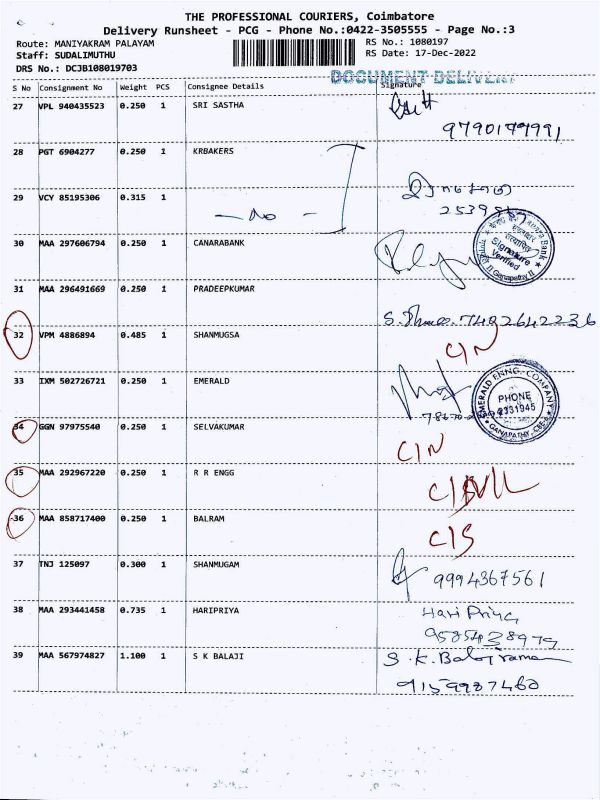 THE PROFESSIONAL COURIERS, Coimbatore
Delivery Runsheet - PCG - Phone No.:0422-3505555 - Page No.:3
Route: MANIYAKRAM PALAYAM RS No.: 1080197
Staff: SUDALIMUTHU RS Date: 17-Dec-2022
DRS No.: DCJB108019703
DOCUMENT DELIVERY
S No Consignment No Weight PCS Consignee Details Signature
27 VPL 940435523 0.250 1 SRI SASTHA
9790199991
28 PGT 6904277 0.250 1 KRBAKERS
29 VCY 85195306 0.315 1
- No -
30 MAA 297606794 0.250 1 CANARABANK
Signature
Verified
Canara Bank
Ganapathy II
31 MAA 296491669 0.250 1 PRADEEPKUMAR
7402642236
32 VPM 4886894 0.485 1 SHANMUGSA
C/N
33 IXM 502726721 0.250 1 EMERALD
EMERALD ENNG. COMPANY
PHONE
2331945
GANAPATHY, CBE-6
34 GGN 97975540 0.250 1 SELVAKUMAR
C/N
35 MAA 292967220 0.250 1 R R ENGG
36 MAA 858717400 0.250 1 BALRAM
C/S
37 TNJ 125097 0.300 1 SHANMUGAM
9994367561
38 MAA 293441458 0.735 1 HARIPRIYA
Hari Priya
9585438979
39 MAA 567974827 1.100 1 S K BALAJI
S.K.Balajiraman
9159987460